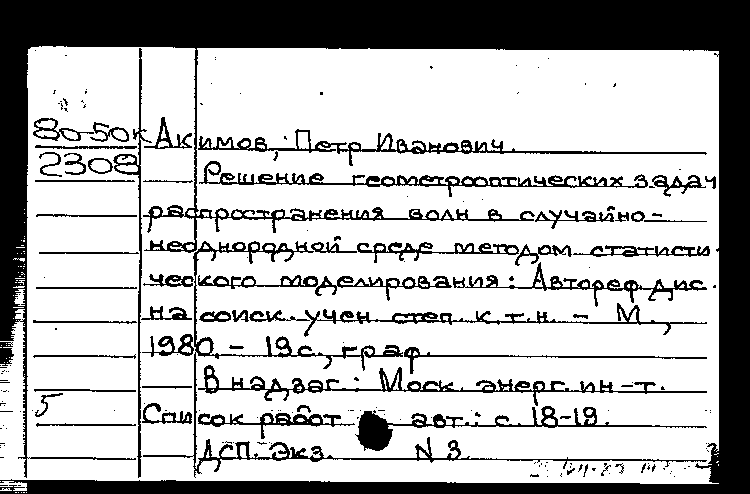 80-50к Акимов, Петр Иванович.
2308 Решение геометрооптических задач
распространения волн в случайно-
неоднородной среде методом статисти-
ческого моделирования: Автореф. дис.
на соиск. учен. степ. к.т.н. - М.,
1980. - 19 с., граф.
В надзаг.: Моск. энерг. ин-т.
5 Список работ авт.: с. 18-19.
ДСП. Экз. N 3